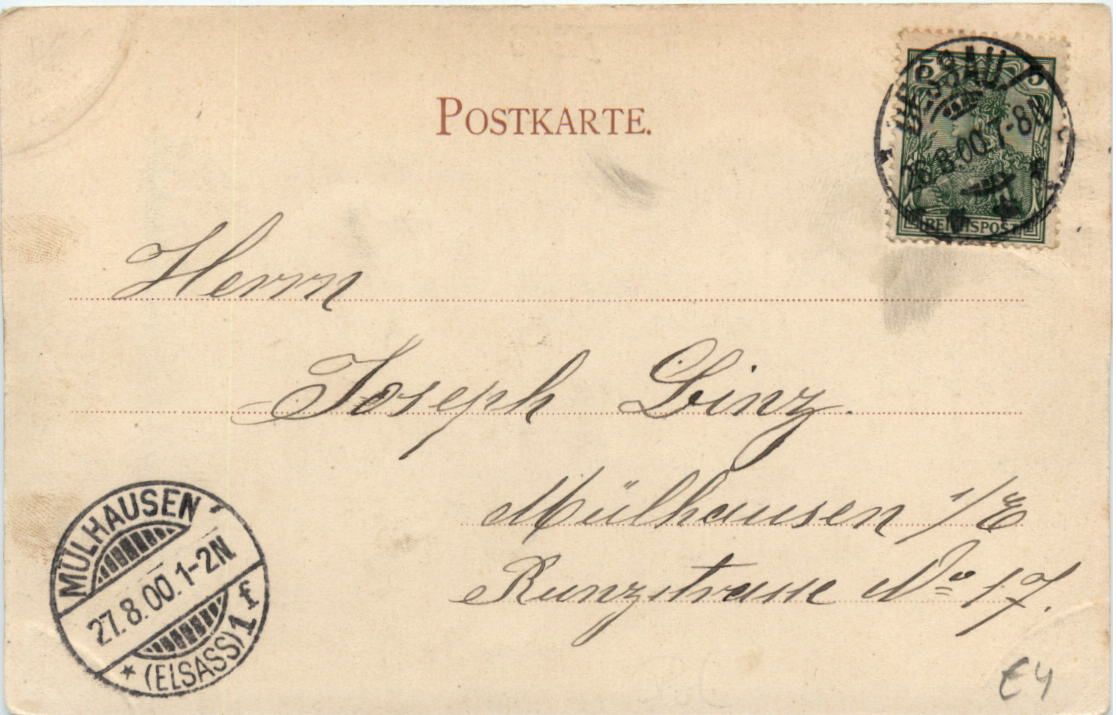 POSTKARTE.
5 5
DESSAU
26.8.00.7-8N
REICHSPOST
Herrn
Joseph Linz.
Mülhausen i/E
Runzstrasse No 17.
MÜLHAUSEN
27.8.00.1-2N
* (ELSASS) 1 f
€4